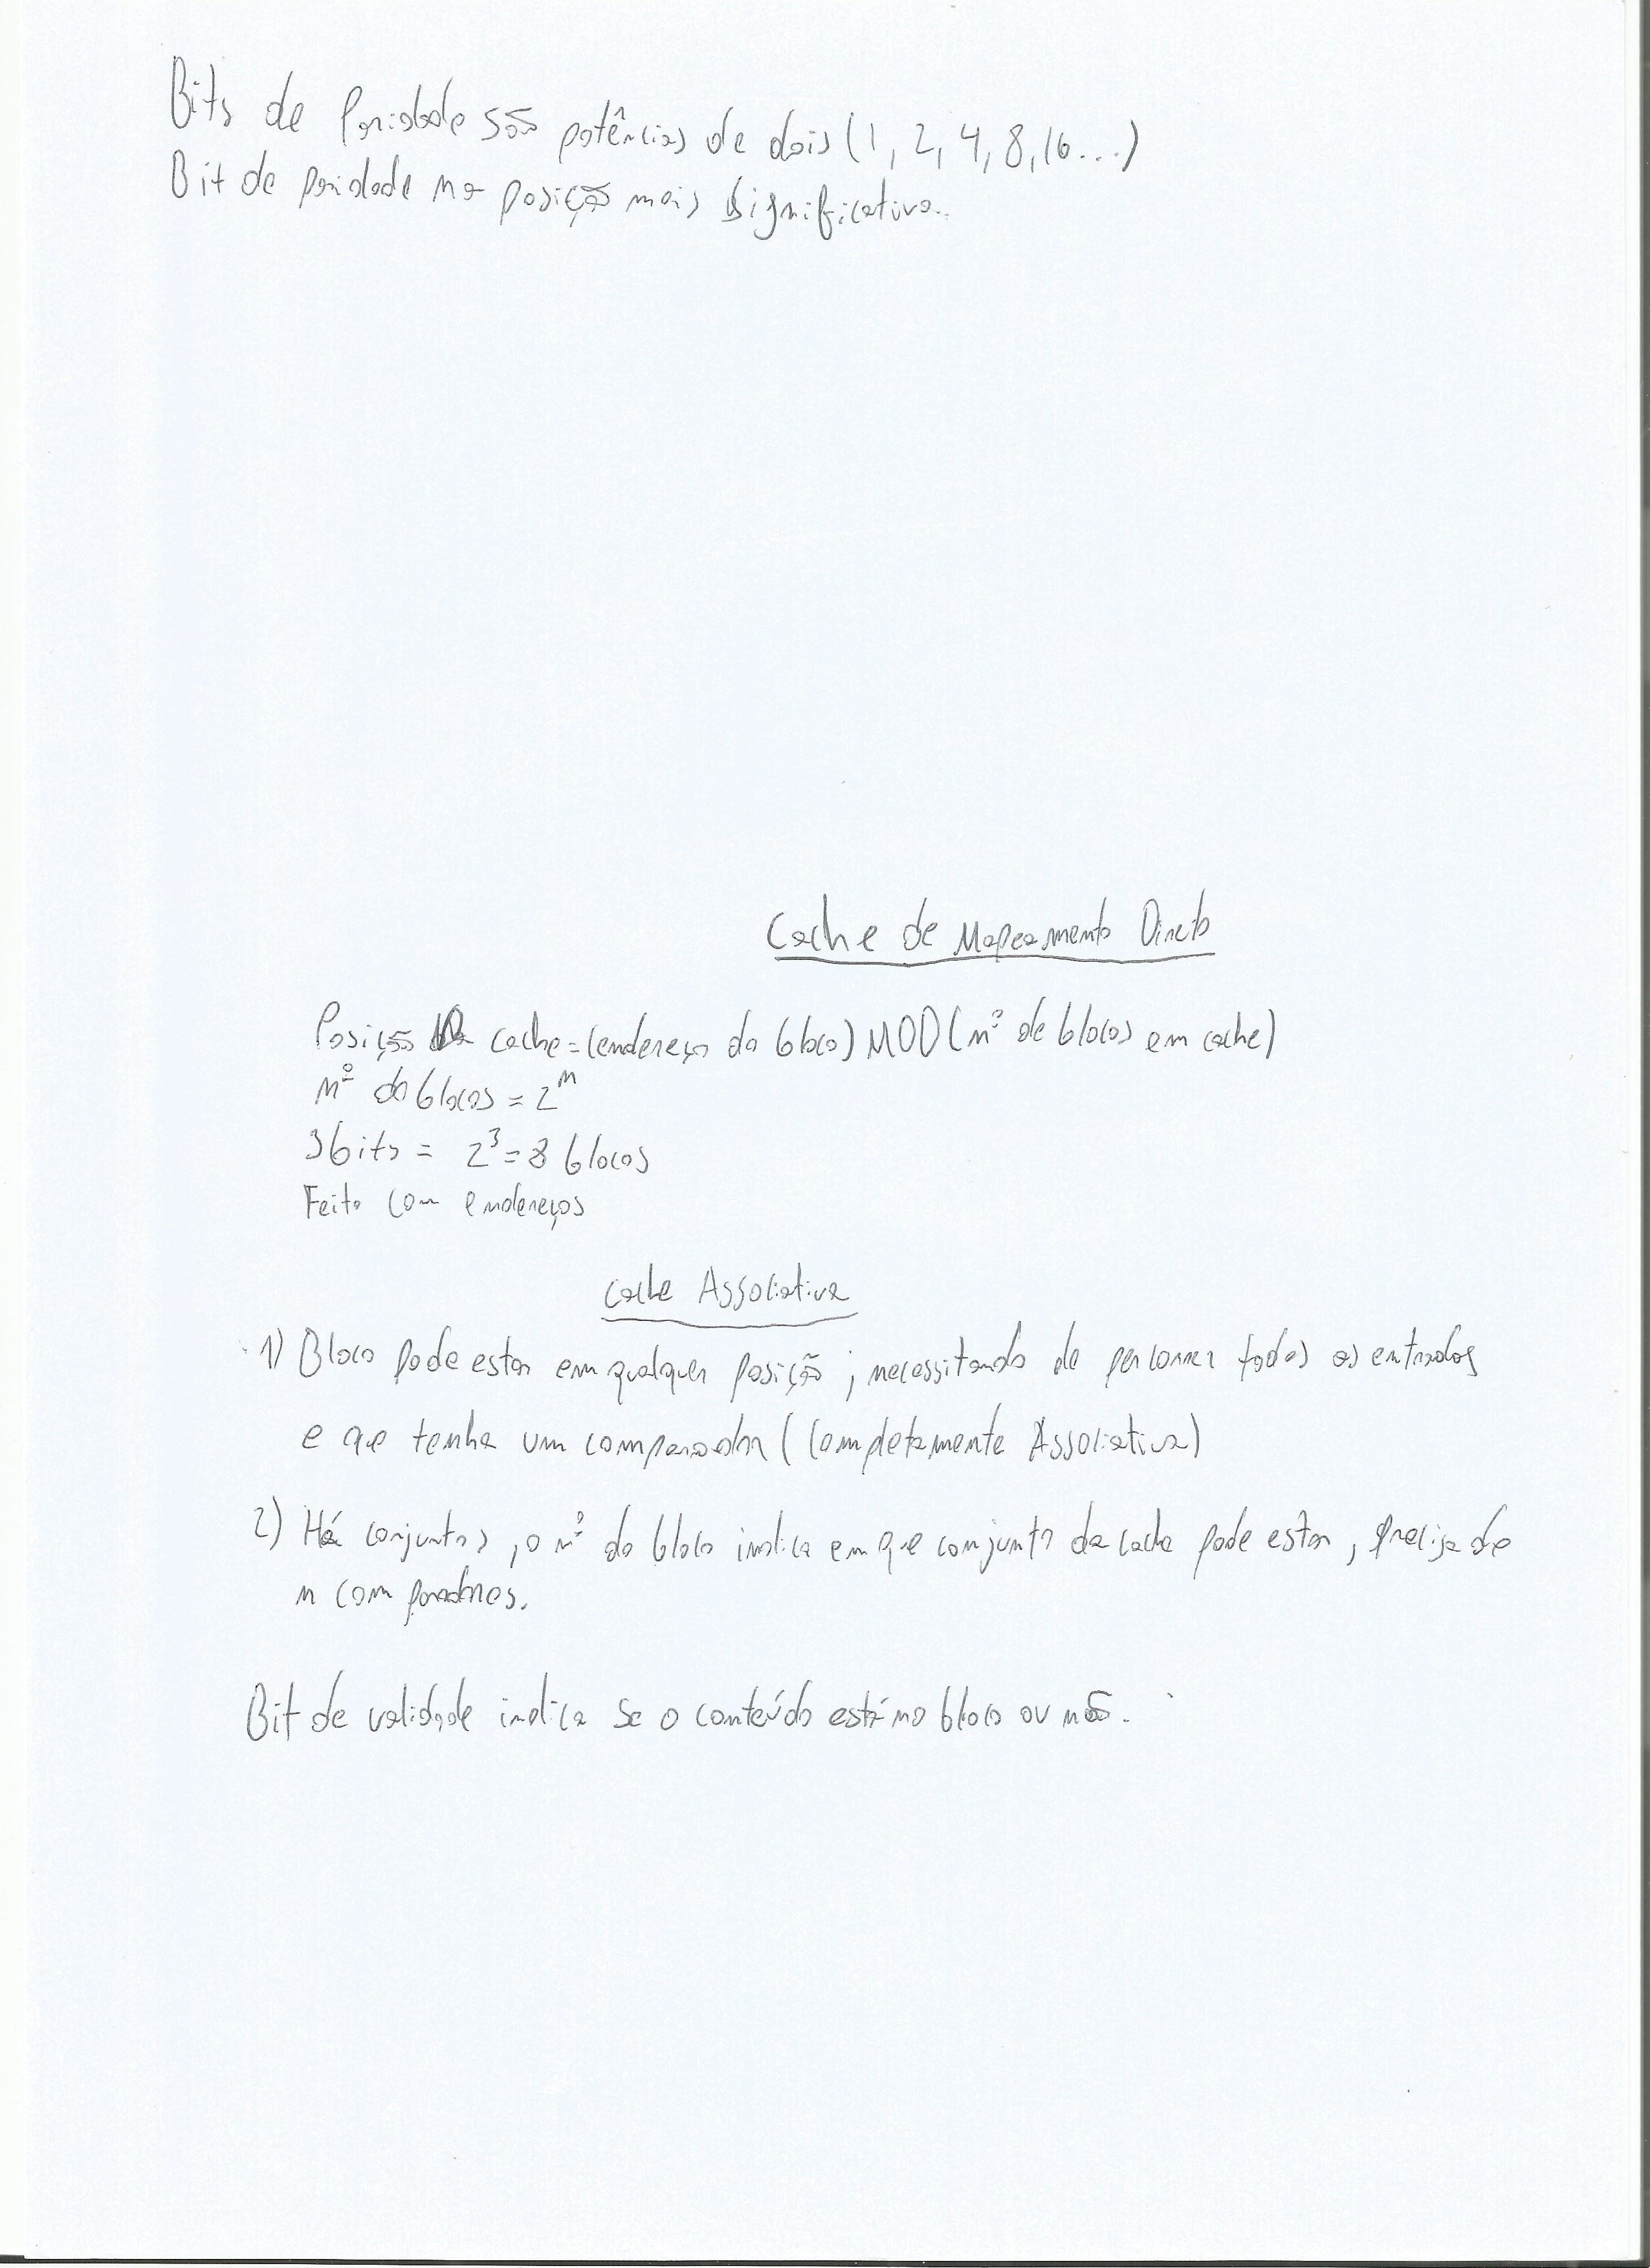 Bits de Paridade são potências de dois (1, 2, 4, 8, 16...)
Bit de paridade na posição mais significativa..
Cache de Mapeamento Direto
Posição na cache = (endereço do bloco) MOD (nº de blocos em cache)
nº de blocos = 2^n
3 bits = 2^3 = 8 blocos
Feito com endereços
Cache Associativa
1) Bloco pode estar em qualquer posição, necessitando de percorrer todas as entradas
e que tenha um comparador (Completamente Associativa)
2) Há conjuntos, o nº do bloco indica em que conjunto da cache pode estar, precisa de
n comparadores.
Bit de validade indica se o conteúdo está no bloco ou não.